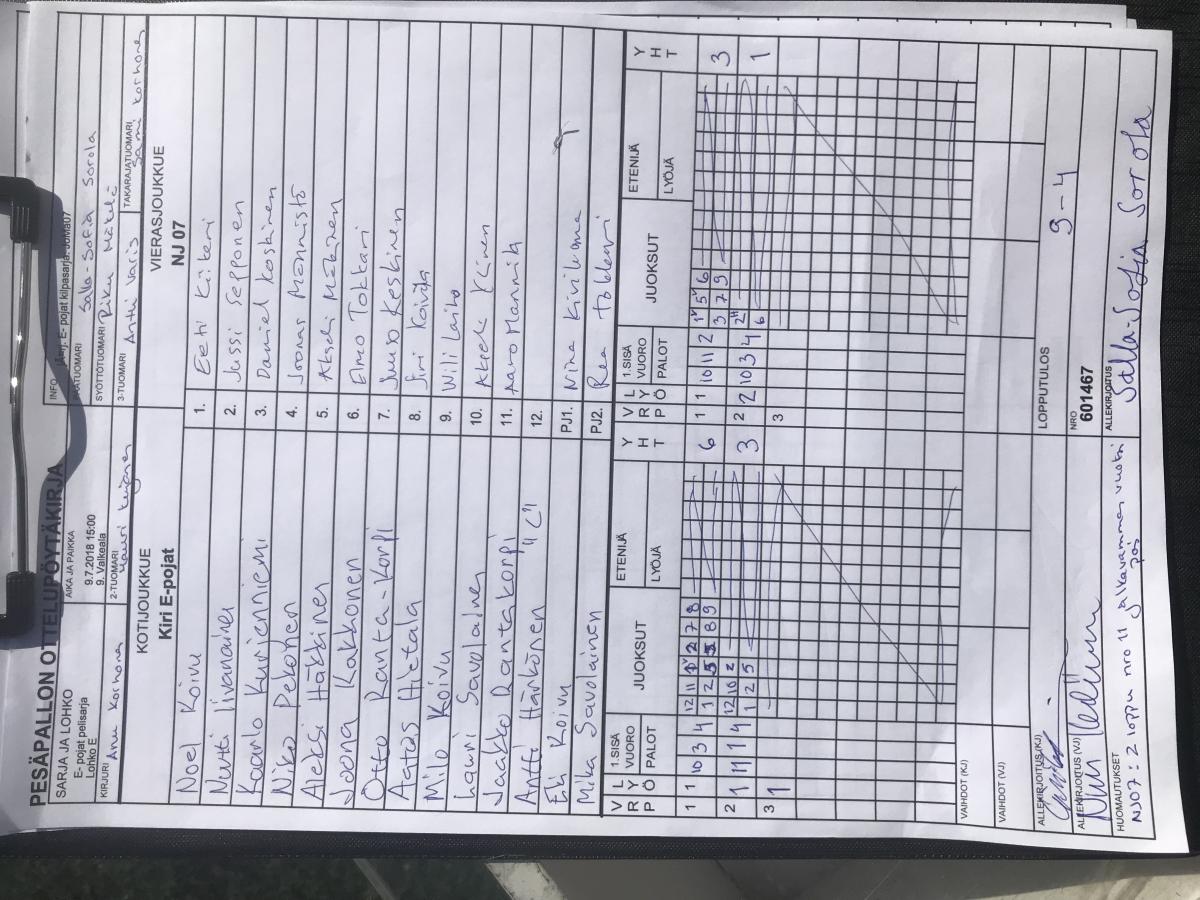 PESÄPALLON OTTELUPÖYTÄKIRJA
SARJA JA LOHKO
E- pojat pelisarja
Lohko E
AIKA JA PAIKKA
9.7.2018 15:00
9. Valkeala
INFO
E- pojat kilpasarja, Joma07
Salla-Sofia Sorola
KIRJURI Anu Korhonen
2-TUOMARI
SYÖTTÖTUOMARI Riku Mäkelä
3-TUOMARI Antti Varis
TAKARAJATUOMARI Sami Korhonen
KOTIJOUKKUE
Kiri E-pojat
VIERASJOUKKUE
NJ 07
Noel Koivu
1. Eeti Kiiteri
Nuutti Iivanainen
2. Jussi Sepponen
Kaarlo Kurienniemi
3. Daniel Koskinen
Niko Pekonen
4. Joonas Manmistö
Aleksi Häkkinen
5. Akseli Mäkinen
Joona Kakkonen
6. Elmo Tokkari
Otto Ranta-Korpi
7. Juuso Keskinen
Aatos Hietala
8.
Milo Koivu
9. Wili Laiho
Lauri Savolainen
10.
Jaakko Rantakorpi
11. Aaro Mannila
Antti Härkönen "C"
12.
Eki Koivu
PJ1. Niina Kivikuma
Mika Savolainen
PJ2. Rea Tokkari
V R P
L Y Ö
1.SISÄ VUORO PALOT
JUOKSUT
ETENIJÄ
LYÖJÄ
Y H T
V R P
L Y Ö
1.SISÄ VUORO PALOT
JUOKSUT
ETENIJÄ
LYÖJÄ
Y H T
1 1 10 3 4 12 11 1 2 7 8 6
1 2 5 5 8 9
1 1 10 11 2 1 5 6 3
3 7 9
2 1 11 1 4 12 10 2 3
1 2 5
2 2 10 3 4 2 1
6
3 1
3
VAIHDOT (KJ)
VAIHDOT (VJ)
ALLEKIRJOITUS (KJ)
LOPPUTULOS 9-4
ALLEKIRJOITUS (VJ)
NRO
601467
HUOMAUTUKSET
NJ07: 2 loppu nro 11 jalkavamman vuoksi pois
ALLEKIRJOITUS Salla-Sofia Sorola